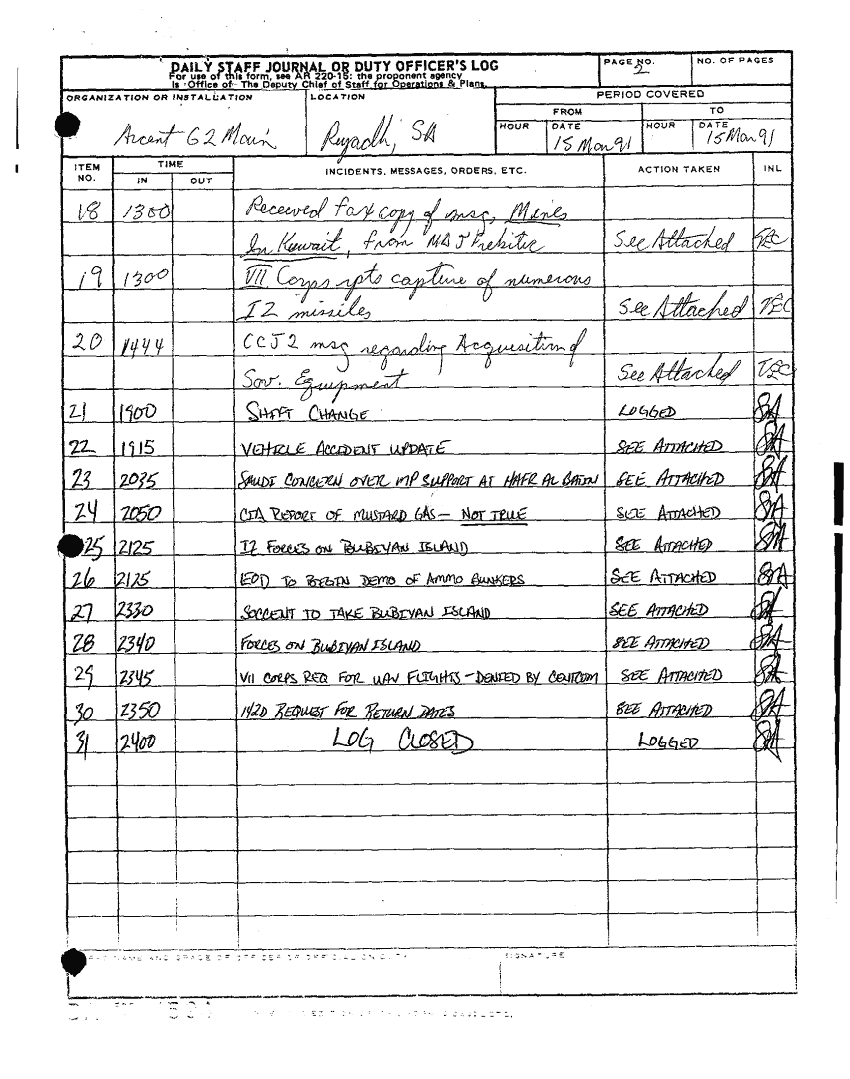 DAILY STAFF JOURNAL OR DUTY OFFICER'S LOG
For use of this form, see AR 220-15: the proponent agency
is Office of The Deputy Chief of Staff for Operations & Plans.
PAGE NO.
2
NO. OF PAGES
ORGANIZATION OR INSTALLATION
Arcent G2 Main
LOCATION
Riyadh, SA
PERIOD COVERED
FROM
TO
HOUR
DATE
15 Mar 91
HOUR
DATE
15 Mar 91
ITEM NO.
TIME
IN
OUT
INCIDENTS, MESSAGES, ORDERS, ETC.
ACTION TAKEN
INL
18 1300 Received fax copy of msg, Mines
In Kuwait, from MAJ See Attached
19 1300 VII Corps rpts capture of numerous
IZ missiles See Attached TEC
20 1444 CCJ2 msg regarding Acquisition of
Sov. Equipment See Attached TEC
21 1900 SHIFT CHANGE LOGGED
22 1915 VEHICLE ACCIDENT UPDATE SEE ATTACHED
23 2035 SAUDI CONCERN OVER MP SUPPORT AT HAFR AL BATIN SEE ATTACHED
24 2050 CIA REPORT OF MUSTARD GAS - NOT TRUE SEE ATTACHED
25 2125 IZ FORCES ON BUBIYAN ISLAND SEE ATTACHED
26 2125 EOD TO BEGIN DEMO OF AMMO BUNKERS SEE ATTACHED
27 2330 SOCCENT TO TAKE BUBIYAN ISLAND SEE ATTACHED
28 2340 FORCES ON BUBIYAN ISLAND SEE ATTACHED
29 2345 VII CORPS REQ FOR UAV FLIGHTS - DENIED BY CENTCOM SEE ATTACHED
30 2350 142D REQUEST FOR RETURN DATES SEE ATTACHED
31 2400 LOG CLOSED LOGGED
NAME AND GRADE OF OFFICER OR OFFICIAL ON DUTY
SIGNATURE